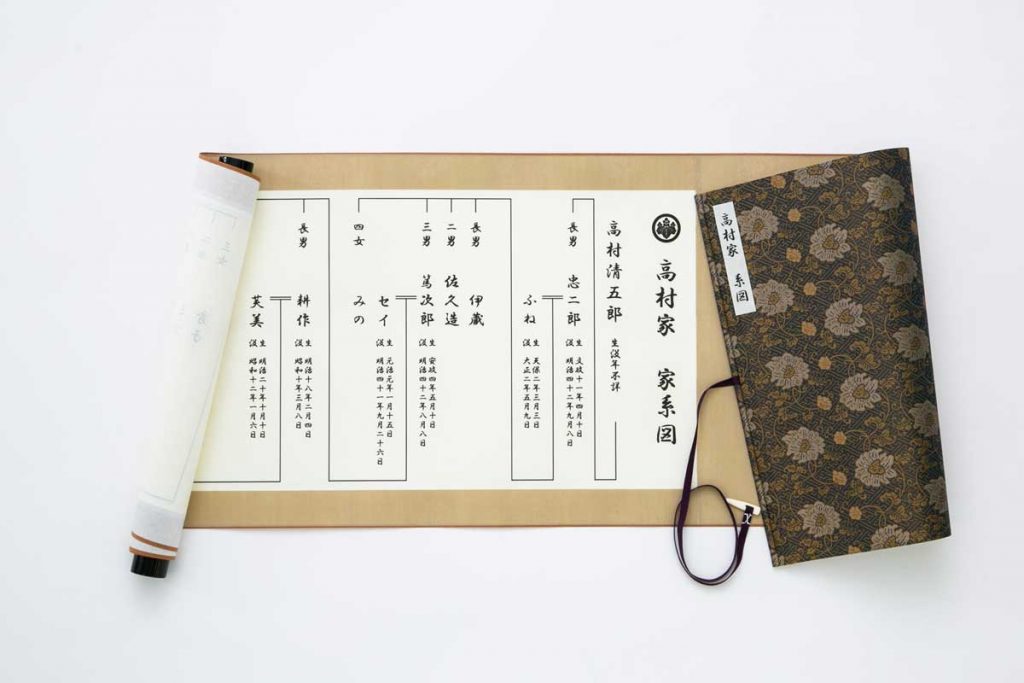 高村家 系図
高村家 家系図
高村清五郎 生没年不詳
長男 忠二郎 生 文政十一年四月十日
没 明治四十二年八月八日
ふね 生 天保二年三月三日
没 大正二年五月九日
長男 伊蔵
二男 佐久造
三男 篤次郎 生 安政四年五月十日
没 明治四十二年八月八日
セイ 生 元治元年一月十五日
没 明治四十一年九月二十六日
四女 みの
長男 耕作 生 明治十八年二月四日
没 昭和十年三月八日
英美 生 明治二十年十月十日
没 昭和十二年一月六日